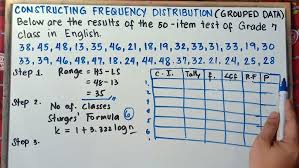 CONSTRUCTING FREQUENCY DISTRIBUTION (GROUPED DATA)
Below are the results of the 50-item test of Grade 7
class in English.
38, 45, 48, 13, 35, 46, 21, 18, 19, 32, 33, 31, 33, 19, 30
33, 39, 46, 48, 47, 18, 24, 44, 48, 37, 32, 21, 24, 25, 28
Step 1. Range = HS-LS
= 48-13
= 35
Step 2. No of. Classes 6
Sturges' Formula
k = 1+3.322 log n
Step 3.
C.I. Tally f. <cf R.F P
1.
2.
3.
4.
5.
6.